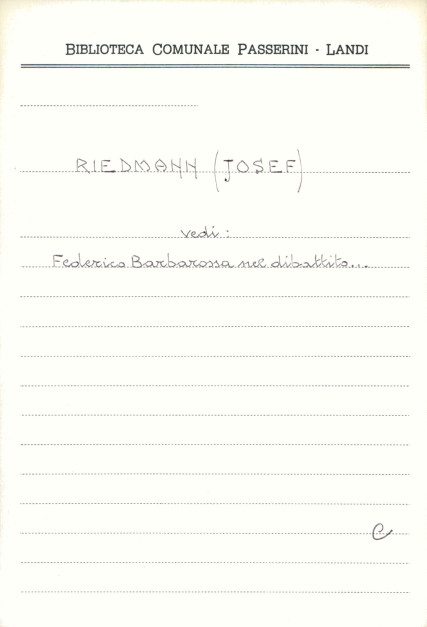 BIBLIOTECA COMUNALE PASSERINI - LANDI
RIEDMANN (JOSEF)
vedi:
Federico Barbarossa nel dibattito...
C